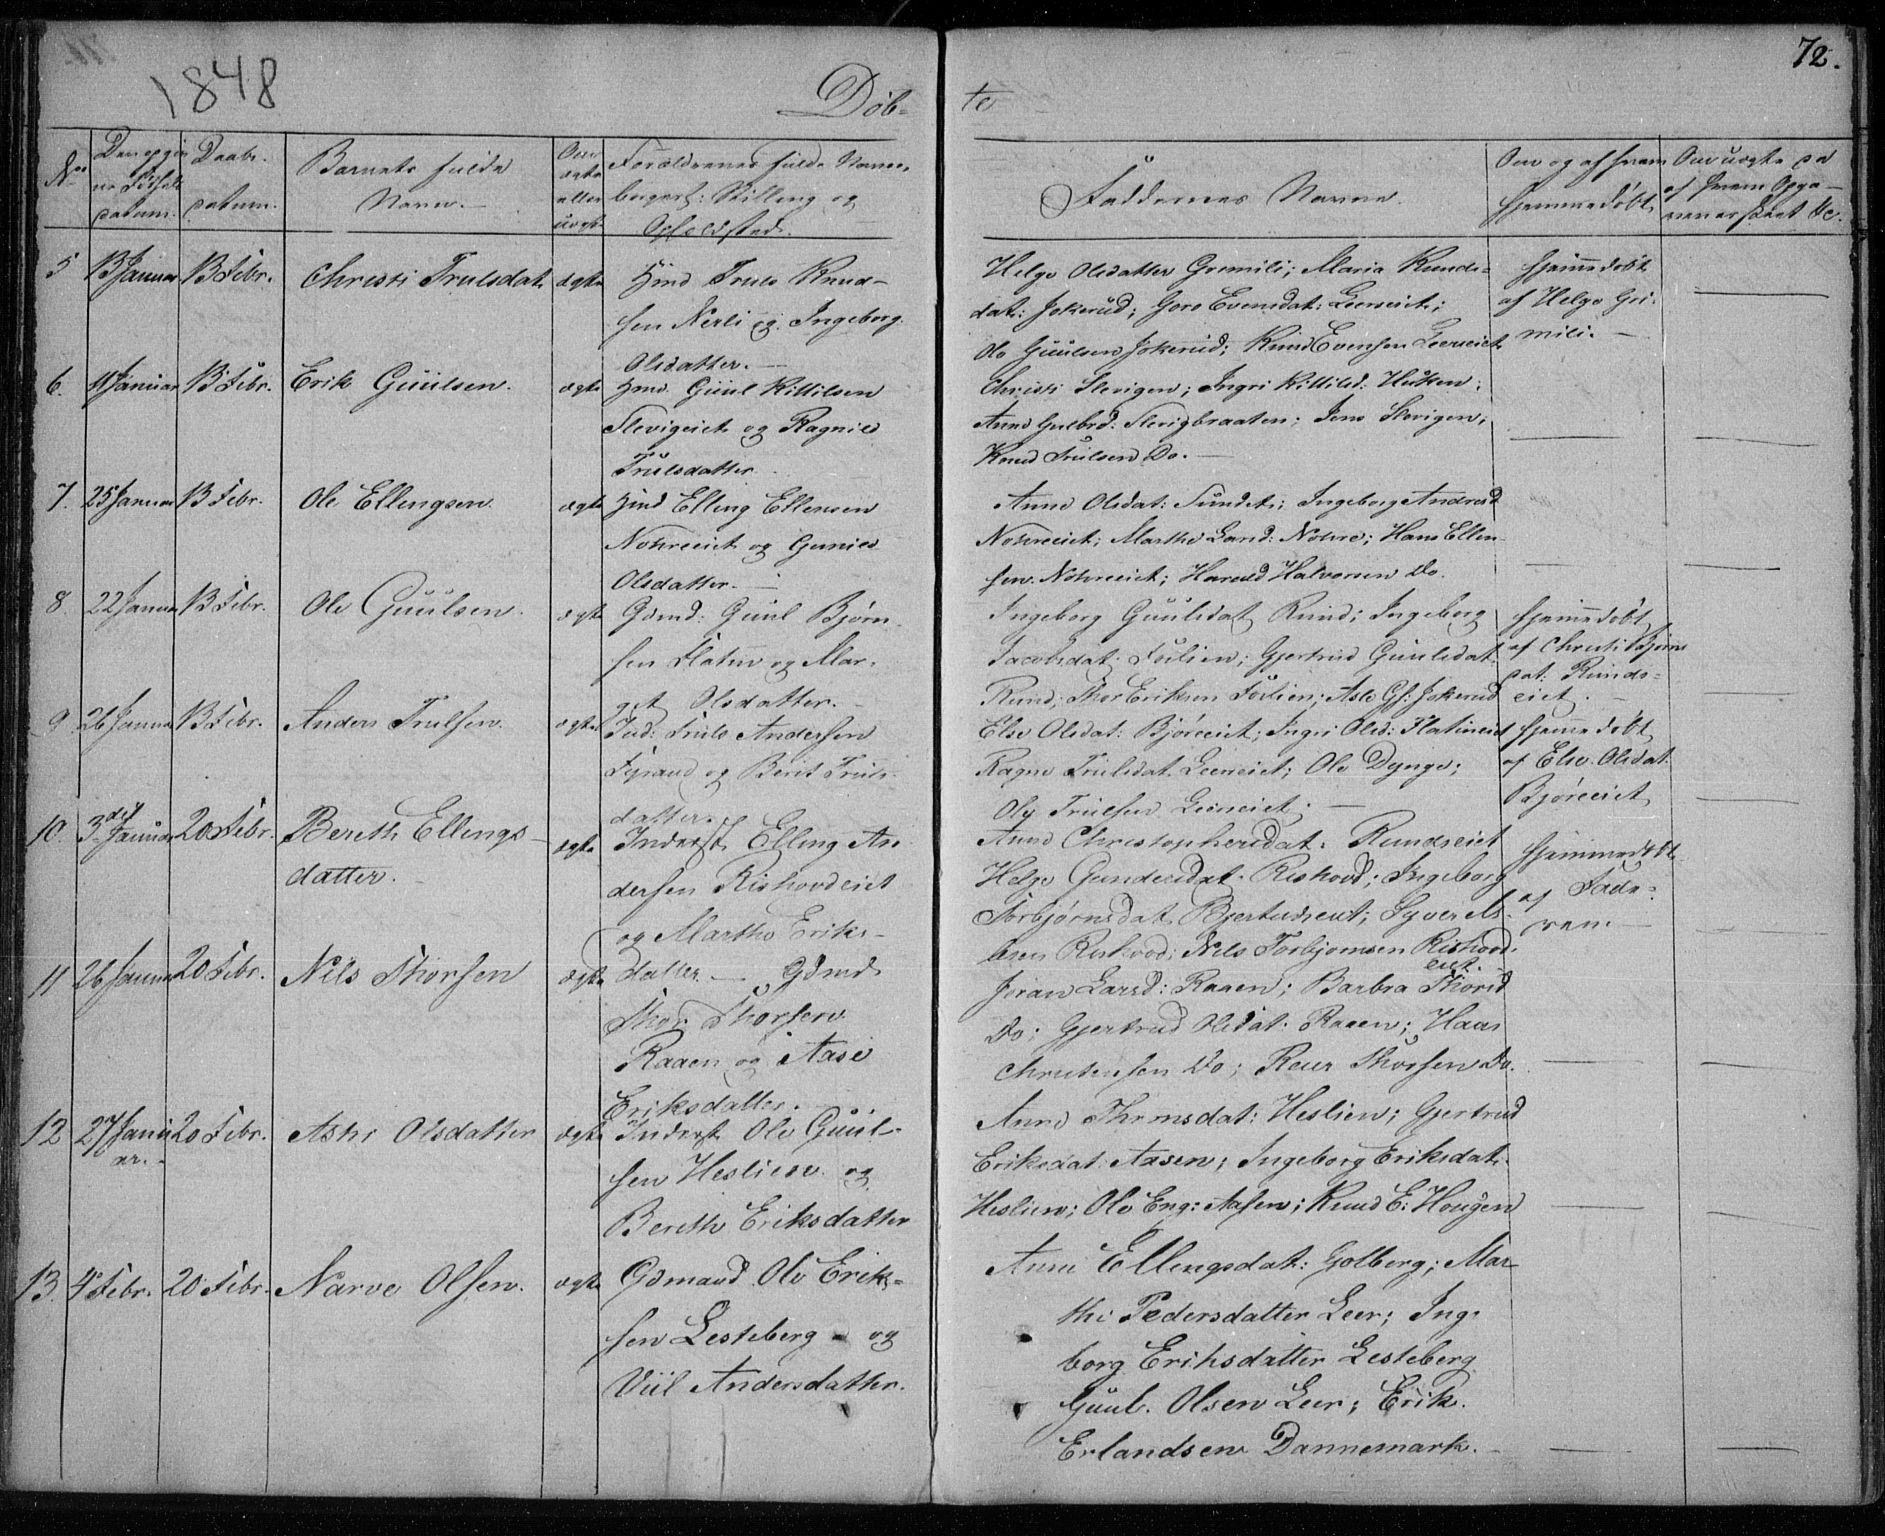 72.
1848
Døb-
te
No
Den opgivne Fødselsdatum.
Daabsdatum.
Barnets fulde Navn.
Om ægte eller uægte
Forældrenes fulde Navne, borgerl: Stilling og Opholdsted.
Faddernes Navne.
Om og af hvem hjemmedøbt
5 13 Januar 13 Febr. Christi Trulsdat. ægte Hmd Truls Knud-
sen Nerli og Ingeborg
Olsdatter.
Helge Olsdatter Gremili; Maria Knuds-
dat: Jokerud; Goro Evensdat: Leereiet;
Ole Guulsen Jokerud; Knud Evensen Leereiet
hjemmedøbt
af Helge Gri-
mili.
6. 11 Januar 13 Febr. Erik Guulsen. ægte Hmd. Guul Kittilsen
Slevigeiet og Ragnild
Trulsdatter
Christi Slevigen; Ingri Kittilsd: Husken;
Anne Gulbrd: Slevigbraaten; Jens Slevigen;
Knud Trulsen Do.
7. 25 Januar 13 Febr. Ole Ellingsen. ægte Hmd Elling Ellensen
Nohreeiet og Gunild
Olsdatter.
Anne Olsdat: Sundet; Ingeborg Andersd
Nohreeiet; Marthe Larsd: Nohre; Hans Ellen-
sen Nohreeiet; Harald Halvorsen Do.
8. 22 Januar 13 Febr. Ole Guulsen. ægte Gdmd: Guul Bjørn-
sen Flatin og Mar-
get Olsdatter.
Ingeborg Guulsdat Rund; Ingeborg
Jacobsdat: Foslien; Gjertrud Guulsdat
Rund; Thor Eriksen Foslien; Asle Gf: Jokerud
hjemmedøbt
af Christi Bjørns
dat: Runds-
eiet.
9 26 Januar 13 Febr. Anders Trulsen. ægte Ind: Truls Andersen
og Berit Truls-
datter.
Else Olsdat: Bjøreeiet; Ingri Olsd: Flatineiet
Ragne Trulsdat. Leereiet; Ole Dynge;
Ole Trulsen Leereiet.
hjemmedøbt
af Else Olsdat:
Bjøreeiet
10. 3die Januar 20 Febr. Bereth Ellings-
datter. ægte Inderst Elling An-
dersen Rishovdeiet
og Marthe Eriks-
datter.
Anne Christophersdat: Rundseiet
Helge Gundersdat: Rishovd; Ingeborg
Torbjørnsdat Bjertudseiet; Syver
Rishovd; Nils Torbjornsen Rishovd-
eiet
hjemmedøbt
af Fade-
ren
11 26 Januar 20 Febr. Nils Thorsen ægte Gdmd
Thor Thorsen
Raaen og Aase
Eriksdatter.
Jøran Larsd: Raaen; Barbra Thorsd
Do; Gjertrud Olsdat: Raaen; Haas
Christensen Do; Reier Thorsen Do.
12 27 Janu-
ar. 20 Febr. Ashi Olsdatter ægte Inderst Ole Guul-
sen Heslien og
Bereth Eriksdatter
Anne Thomsdat: Heslien; Gjertrud
Eriksdat: Aasen; Ingeborg Eriksdat.
Heslien; Ole Eng: Aasen; Knud E: Hougen
13. 4 Febr. 20 Febr. Narve Olsen. ægte Gdmand Ole Erik-
sen Lesteberg og
Viil Andersdatter.
Anne Ellingsdat: Golberg; Mar-
the Pedersdatter Leer; Inge-
borg Eriksdatter Lesteberg
Guul. Olsen Leer; Erik
Erlandsen Dannemark.